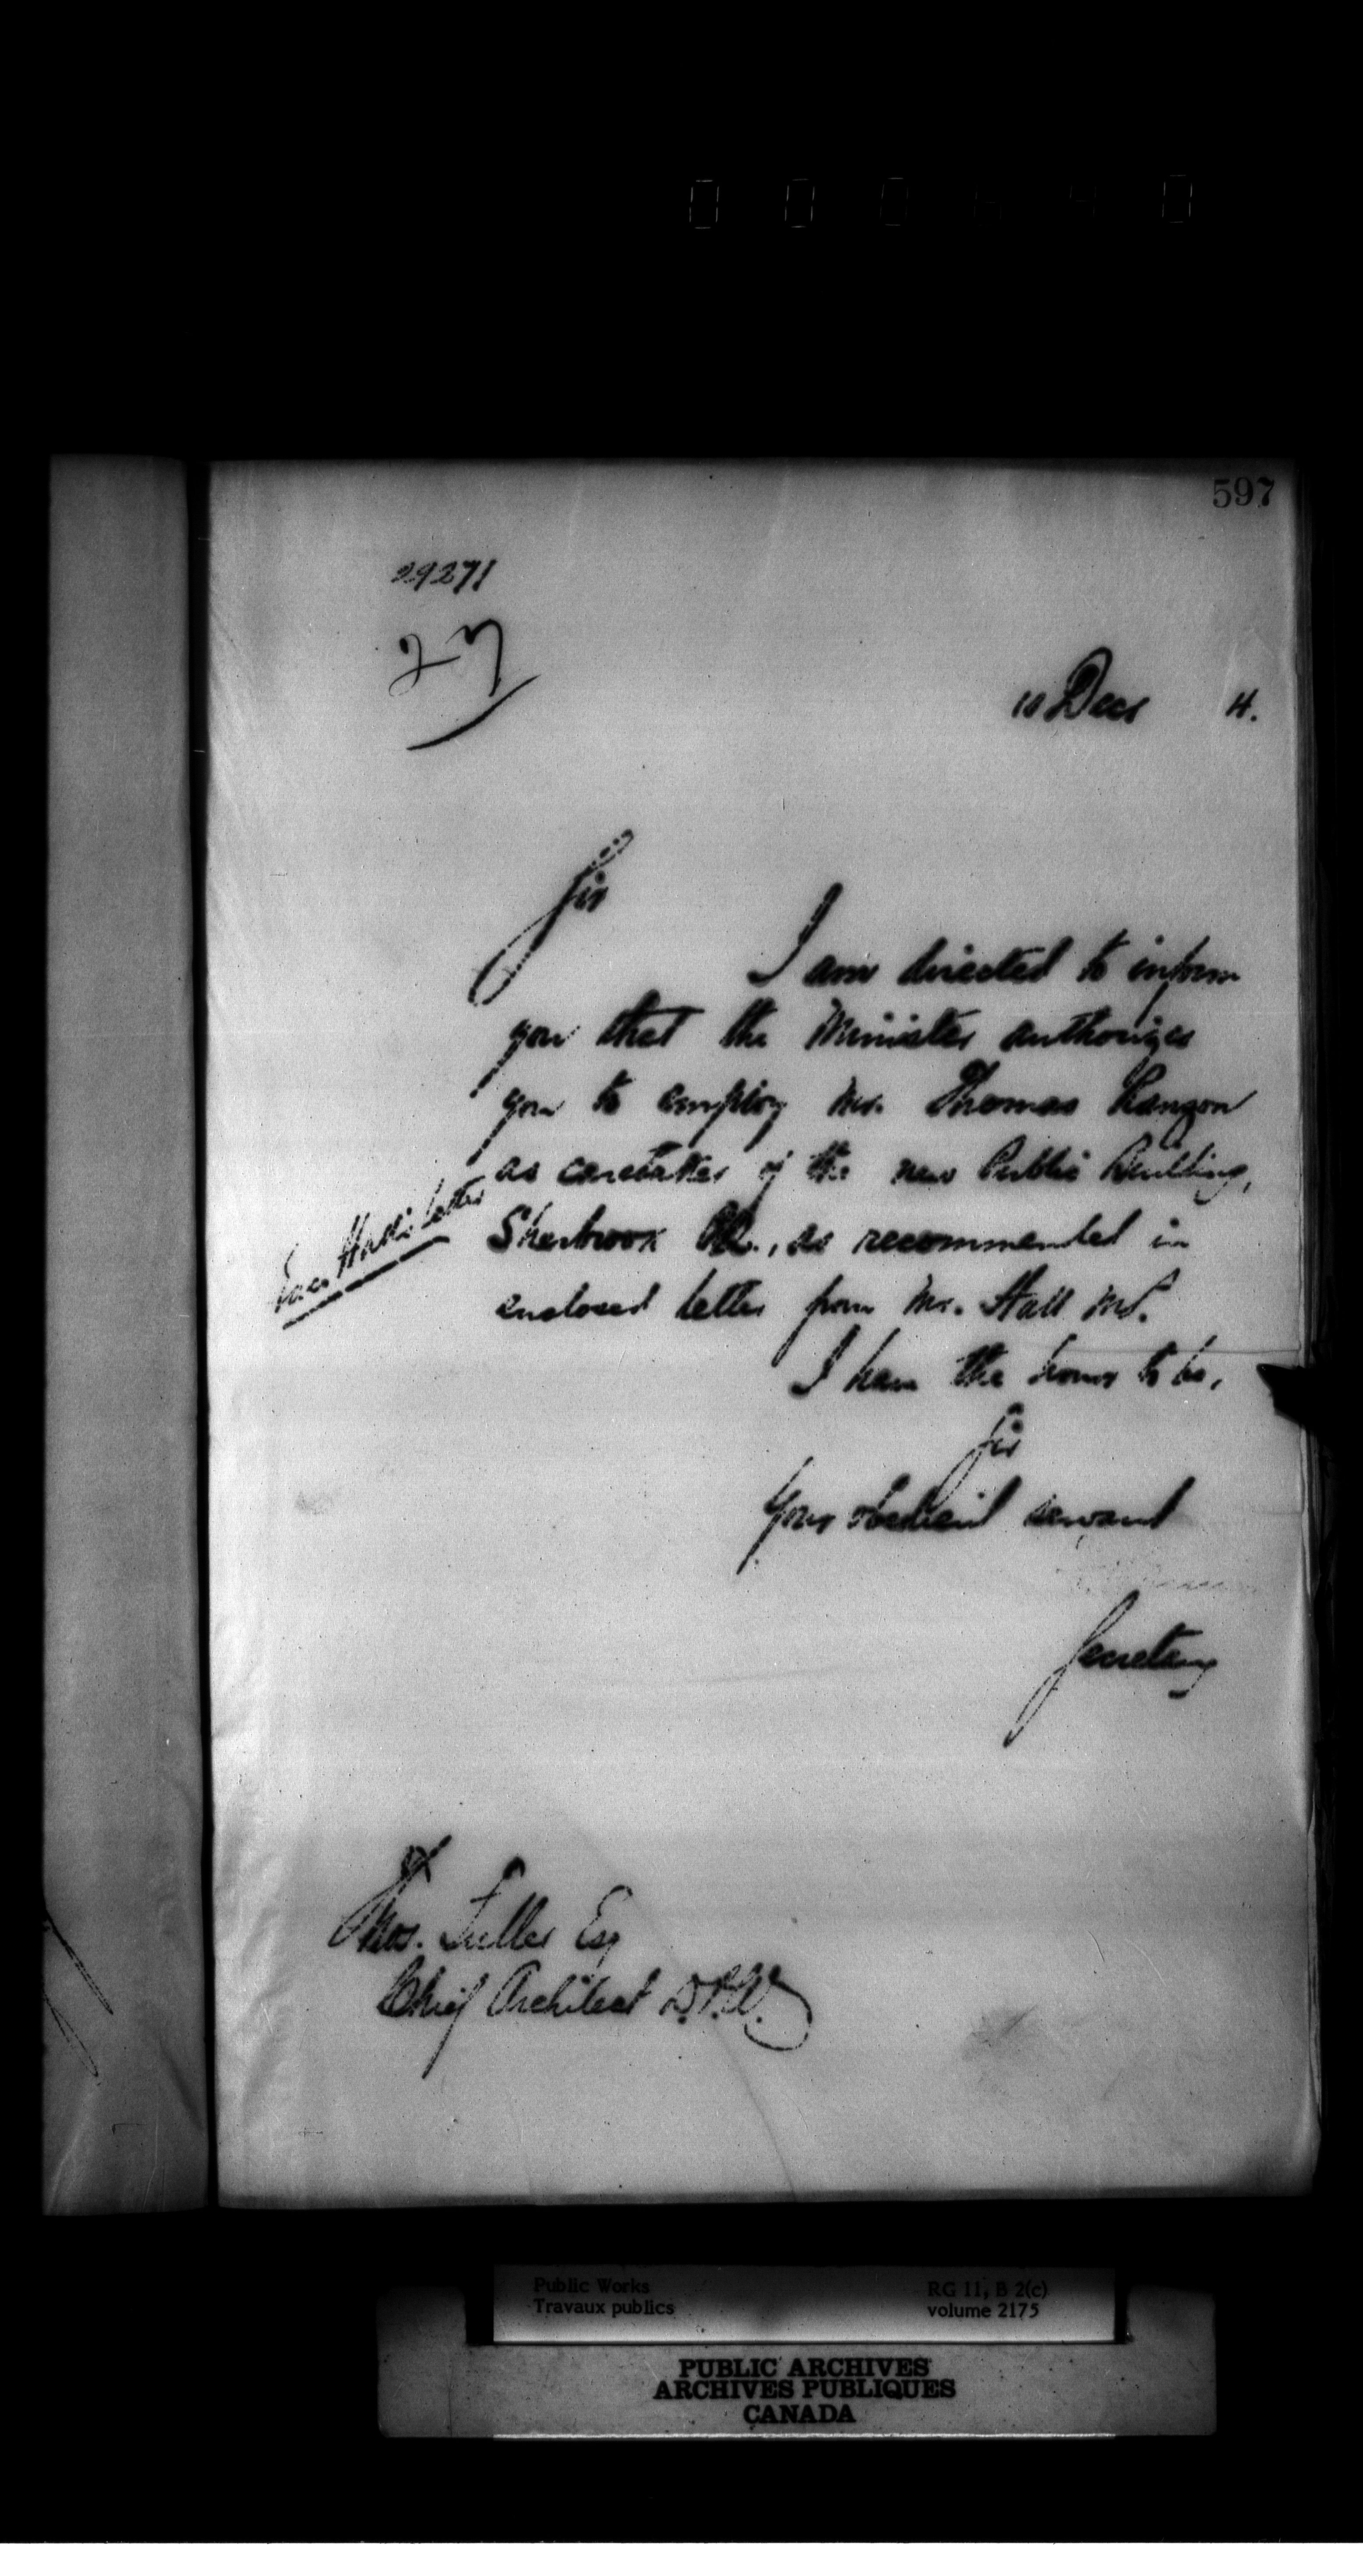 597
29271
27
10 Decr 4.
Sir
I am directed to inform
you that the Minister authorizes
you to employ Mr. Thomas
as caretaker of the new Public Building,
Sherbrook PQ., as recommended in
enclosed letter from Mr. Hall MP.
Hall's letter
I have the honor to be,
Sir
Your obedient servant
Secretary
Thos. Fuller Esq
Chief Architect D.P.W.
Public Works
Travaux publics
RG 11, B 2(c)
volume 2175
PUBLIC ARCHIVES
ARCHIVES PUBLIQUES
CANADA